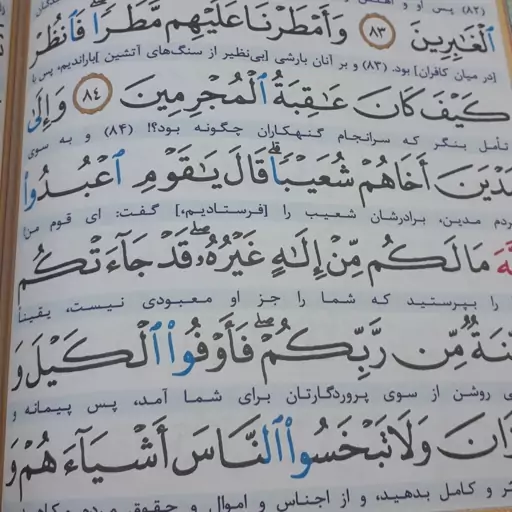 (۸۲) پس او و
ٱلْغَٰبِرِينَ ﴿٨٣﴾ وَأَمْطَرْنَا عَلَيْهِم مَّطَرًا ۖ فَٱنظُرْ
[در میان کافران] بود. (۸۳) و بر آنان بارشی [بی‌نظیر از سنگ‌های آتشین] باراندیم، پس با
كَيْفَ كَانَ عَٰقِبَةُ ٱلْمُجْرِمِينَ ﴿٨٤﴾ وَإِلَىٰ
تأمل بنگر که سرانجام گنهکاران چگونه بود؟! (۸۴) و به سوی
مَدْيَنَ أَخَاهُمْ شُعَيْبًا ۗ قَالَ يَٰقَوْمِ ٱعْبُدُوا۟
ردم مدین، برادرشان شعیب را [فرستادیم،] گفت: ای قوم من!
مَا لَكُم مِّنْ إِلَٰهٍ غَيْرُهُۥ ۖ قَدْ جَآءَتْكُم
را بپرستید که شما را جز او معبودی نیست، یقیناً
بَيِّنَةٌ مِّن رَّبِّكُمْ ۖ فَأَوْفُوا۟ ٱلْكَيْلَ وَ
ی روشن از سوی پروردگارتان برای شما آمد، پس پیمانه و
زَانَ وَلَا تَبْخَسُوا۟ ٱلنَّاسَ أَشْيَآءَهُمْ وَ
و کامل بدهید، و از اجناس و اموال و حقوق مردم